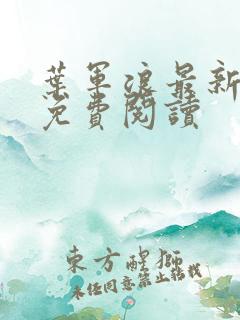 葉軍浪最新
免費閱讀
東方醒獅
未經同意禁止轉載